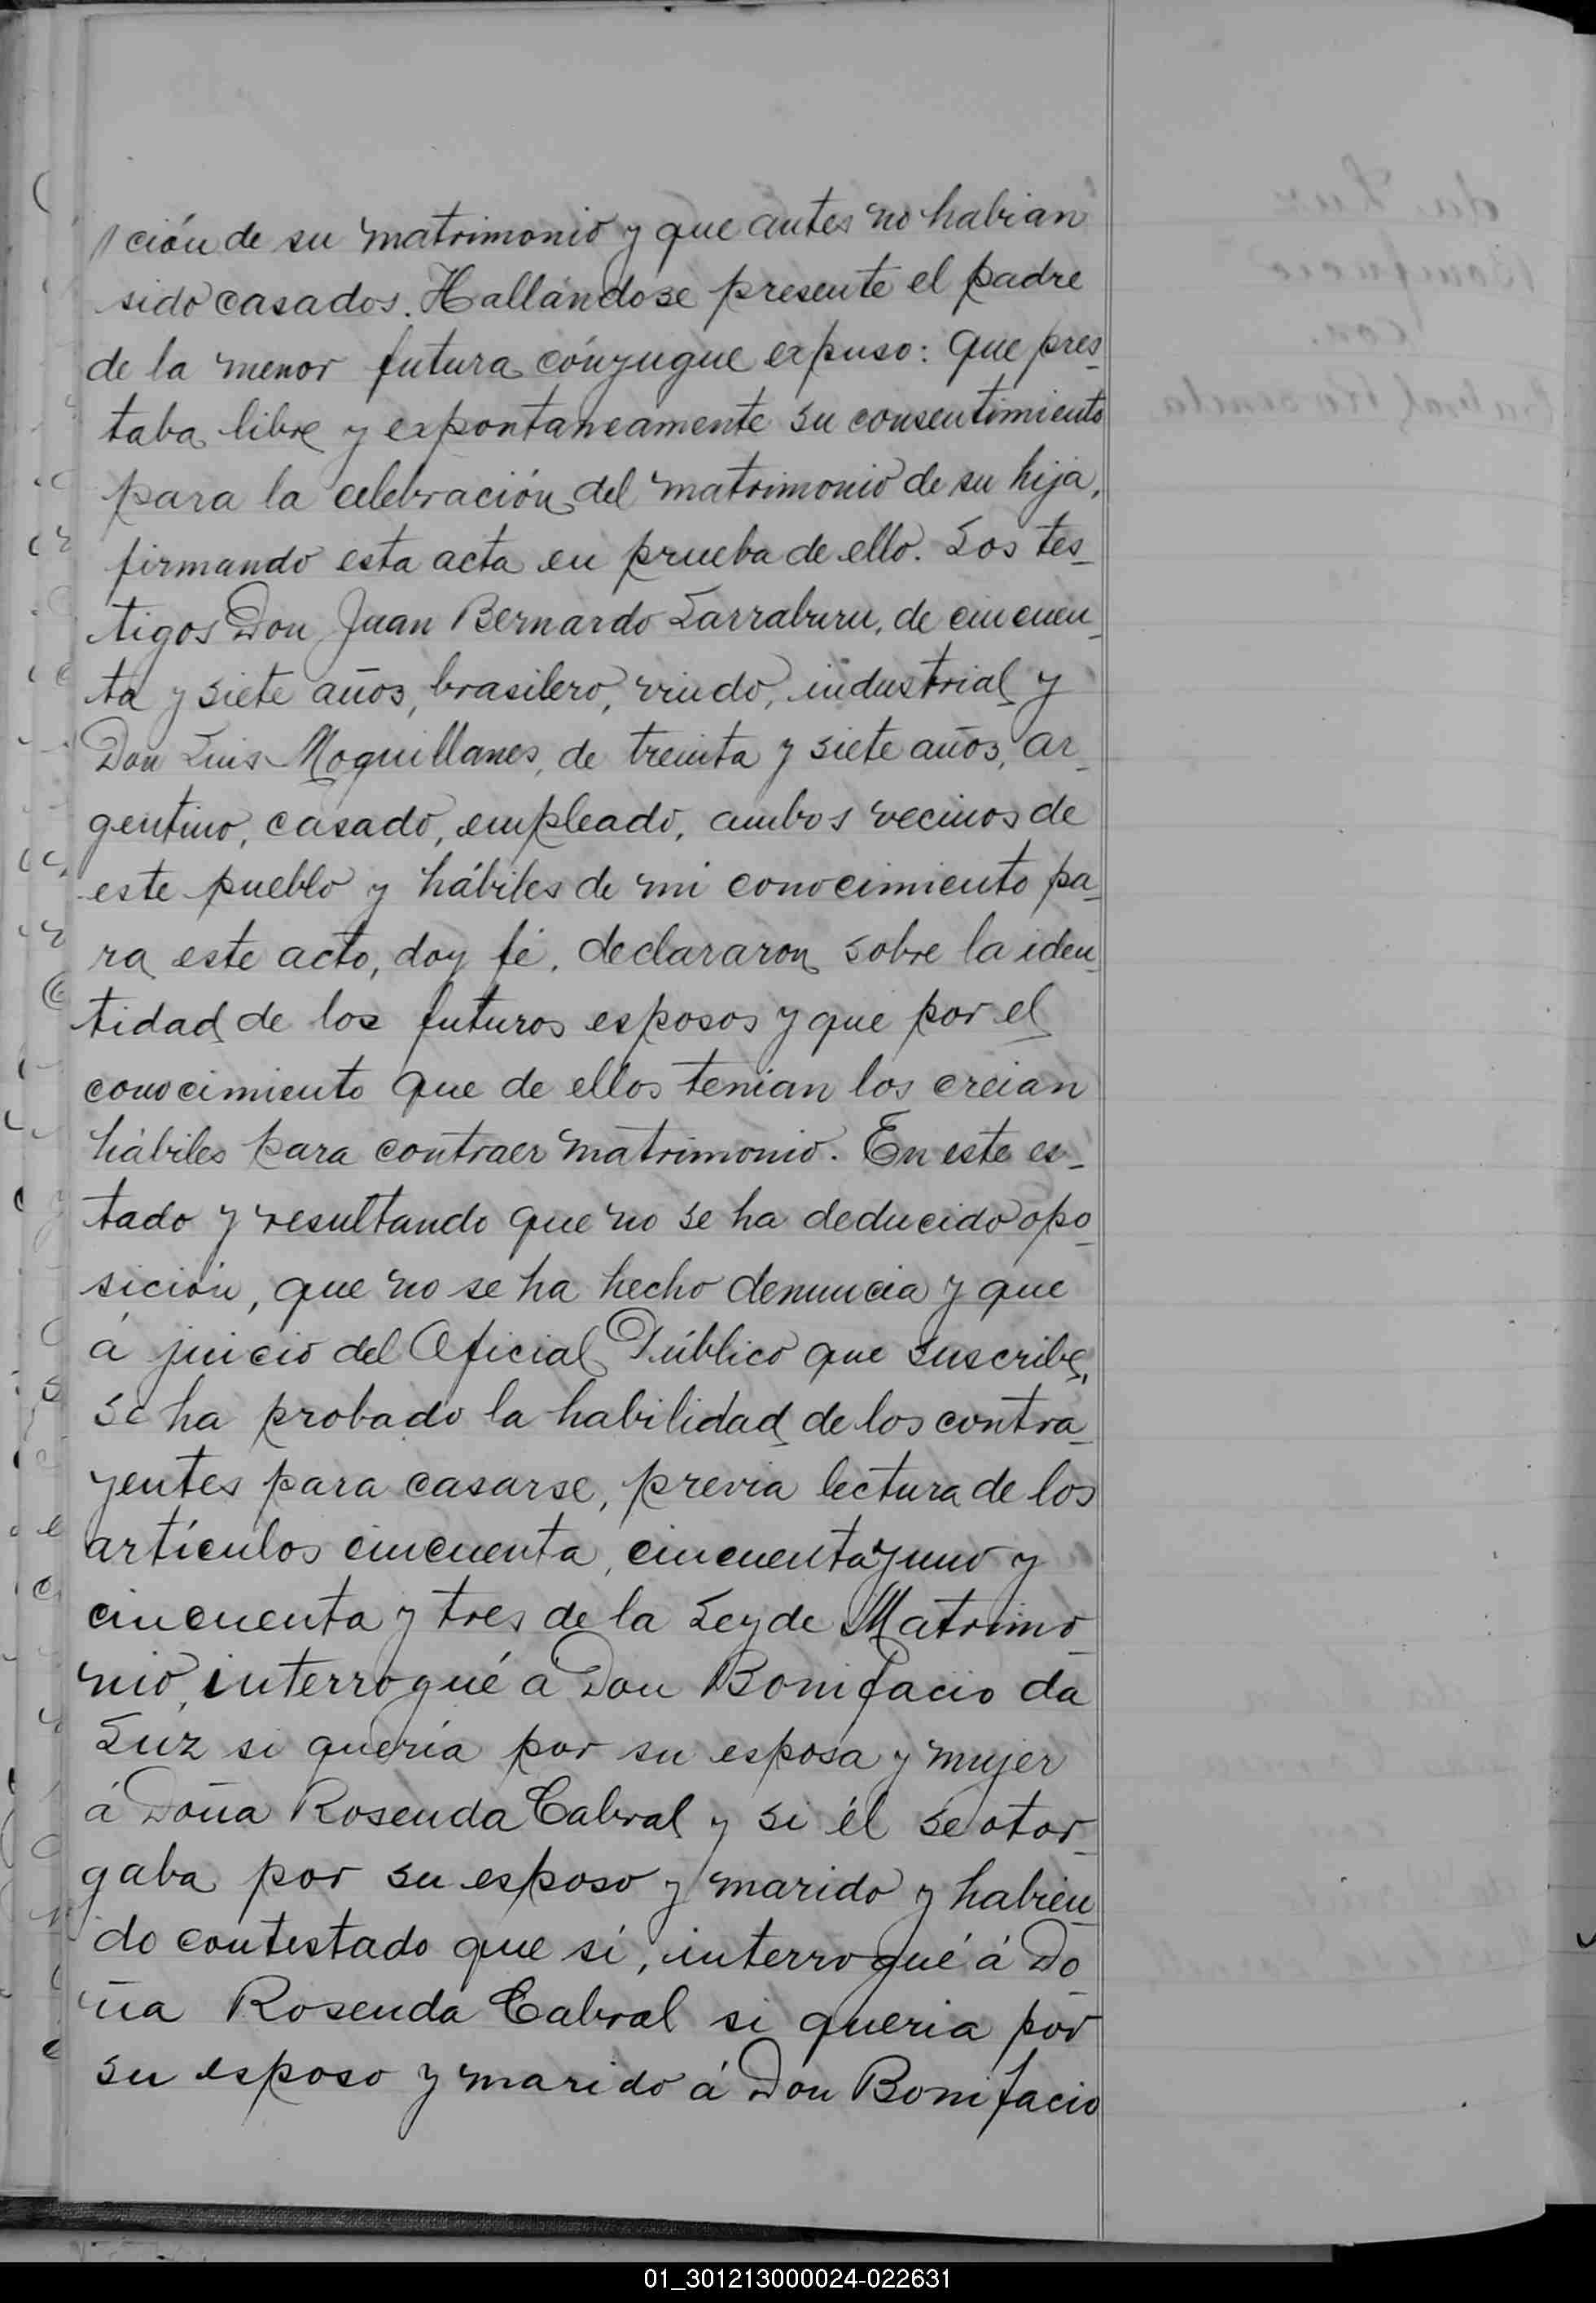 ción de su matrimonio y que antes no habian
sido casados. Hallándose presente el padre
de la menor futura cónyugue expuso: Que pres-
taba libre y expontaneamente su consentimiento
para la celebración del matrimonio de su hija,
firmando esta acta en prueba de ello. Los tes-
tigos Don Juan Bernardo Larraburu, de cincuen-
ta y siete años, brasilero, viudo, industrial y
Don Luis Moquillanes, de treinta y siete años, ar-
gentino, casado, empleado, ambos vecinos de
este pueblo y hábiles de mi conocimiento pa-
ra este acto, doy fé, declararon sobre la iden-
tidad de los futuros esposos y que por el
conocimiento que de ellos tenían los creian
hábiles para contraer matrimonio. En este es-
tado y resultando que no se ha deducido opo-
sición, que no se ha hecho denuncia y que
á juicio del Oficial Público que suscribe,
se ha probado la habilidad de los contra-
yentes para casarse, previa lectura de los
artículos cincuenta, cincuenta y uno y
cincuenta y tres de la Ley de Matrimo-
nio, interrogué á Don Bonifacio da
Luz si quería por su esposa y mujer
á Doña Rosenda Cabral y si él se otor-
gaba por su esposo y marido y habien-
do contestado que si, interrogué á Do-
ña Rosenda Cabral si queria por
su esposo y marido á Don Bonifacio
01_301213000024-022631